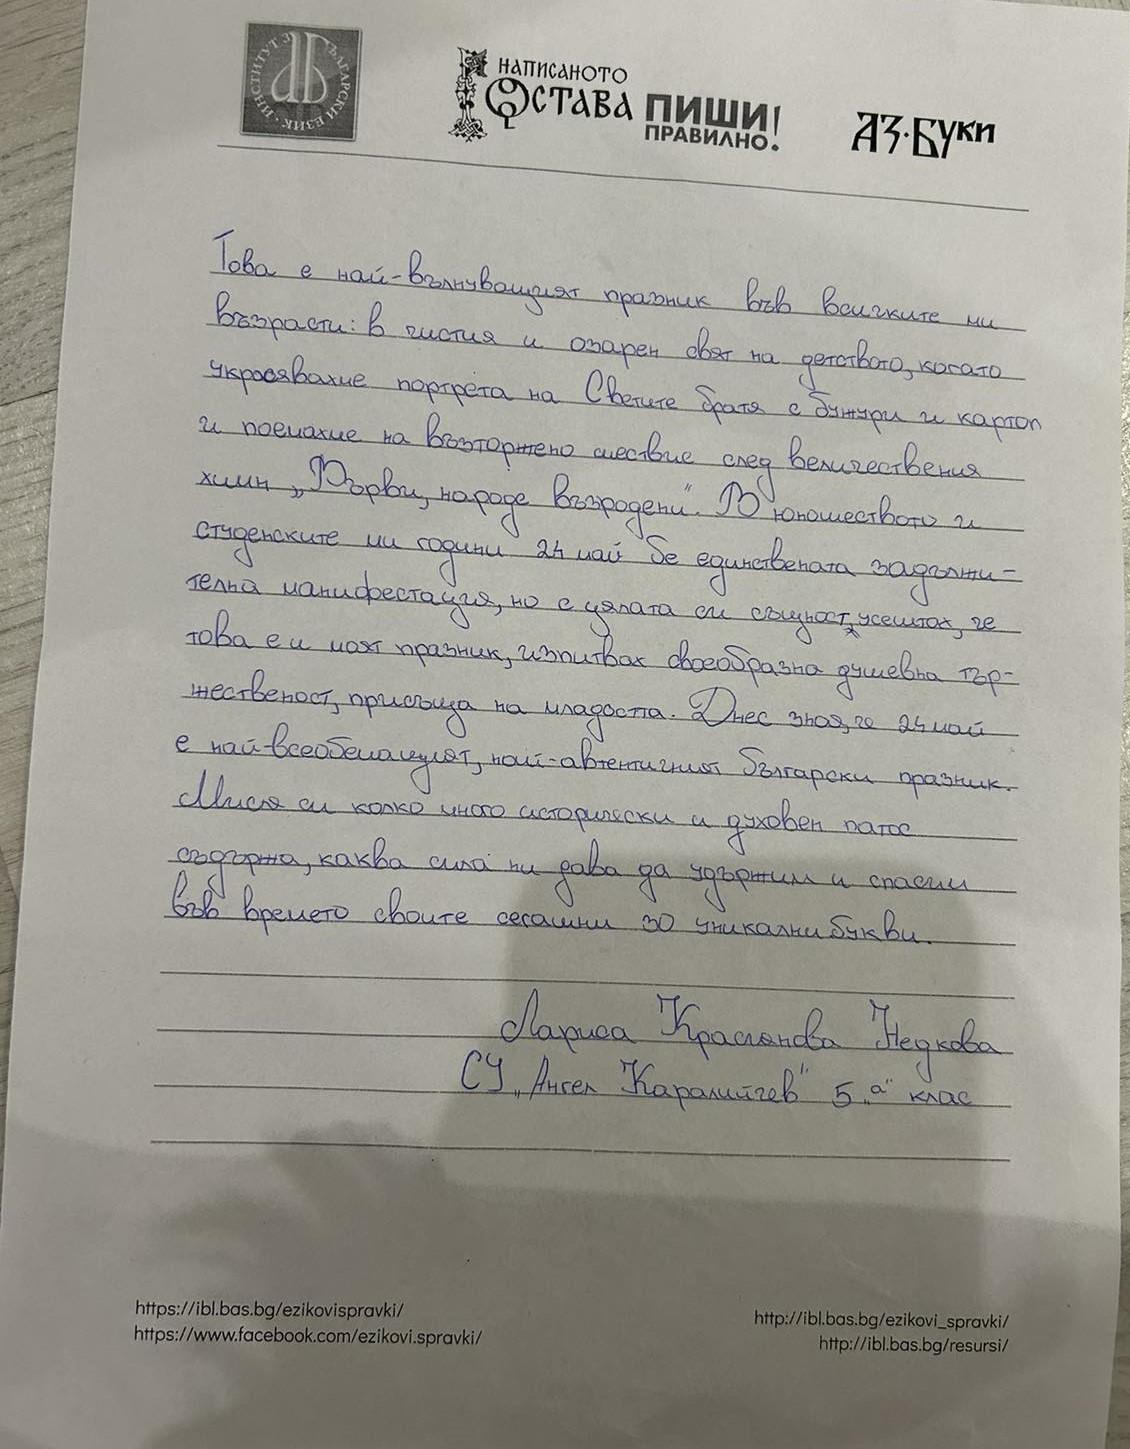 ИНСТИТУТ ЗА БЪЛГАРСКИ ЕЗИК
НАПИСАНОТО
ОСТАВА ПИШИ
ПРАВИЛНО!
АЗ·БУКИ
Това е най-вълнуващият празник във всичките ми
възрасти: в чистия и озарен свят на детството, когато
украсявахме портрета на Светите братя с божури и картон
и поемахме на възторжено шествие след величествения
химн „Върви, народе възродени". В юношеството и
студенските ми години 24 май бе единствената задължи-
телна манифестация, но с цялата си същност усещах, че
това е и моят празник, изпитвах своеобразна душевна тър-
жественост, присъща на младостта. Днес зная, че 24 май
е най-всеобемащият, най-автентичният български празник.
Мисля си колко много исторически и духовен патос
съдържа, каква сила ни дава да удържим и спасим
във времето своите сегашни 30 уникални букви.
Лариса Красиянова Недкова
СУ „Ангел Каралийчев" 5 „а" клас
https://ibl.bas.bg/ezikovispravki/
https://www.facebook.com/ezikovi.spravki/
http://ibl.bas.bg/ezikovi_spravki/
http://ibl.bas.bg/resursi/